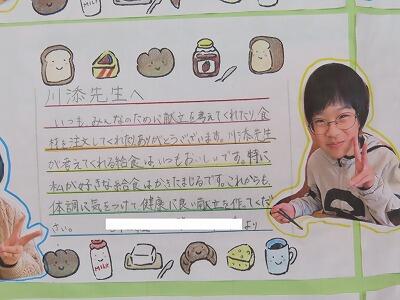 川添先生へ
いつも、みんなのために献立を考えてくれたり、食
材を注文してくれたりありがとうございます。川添先生
が考えてくれる給食は、いつもおいしいです。特に
私が好きな給食はかきたまじるです。これからも、
体調に気をつけて健康に良い献立を作ってくだ
さい。
より
MILK